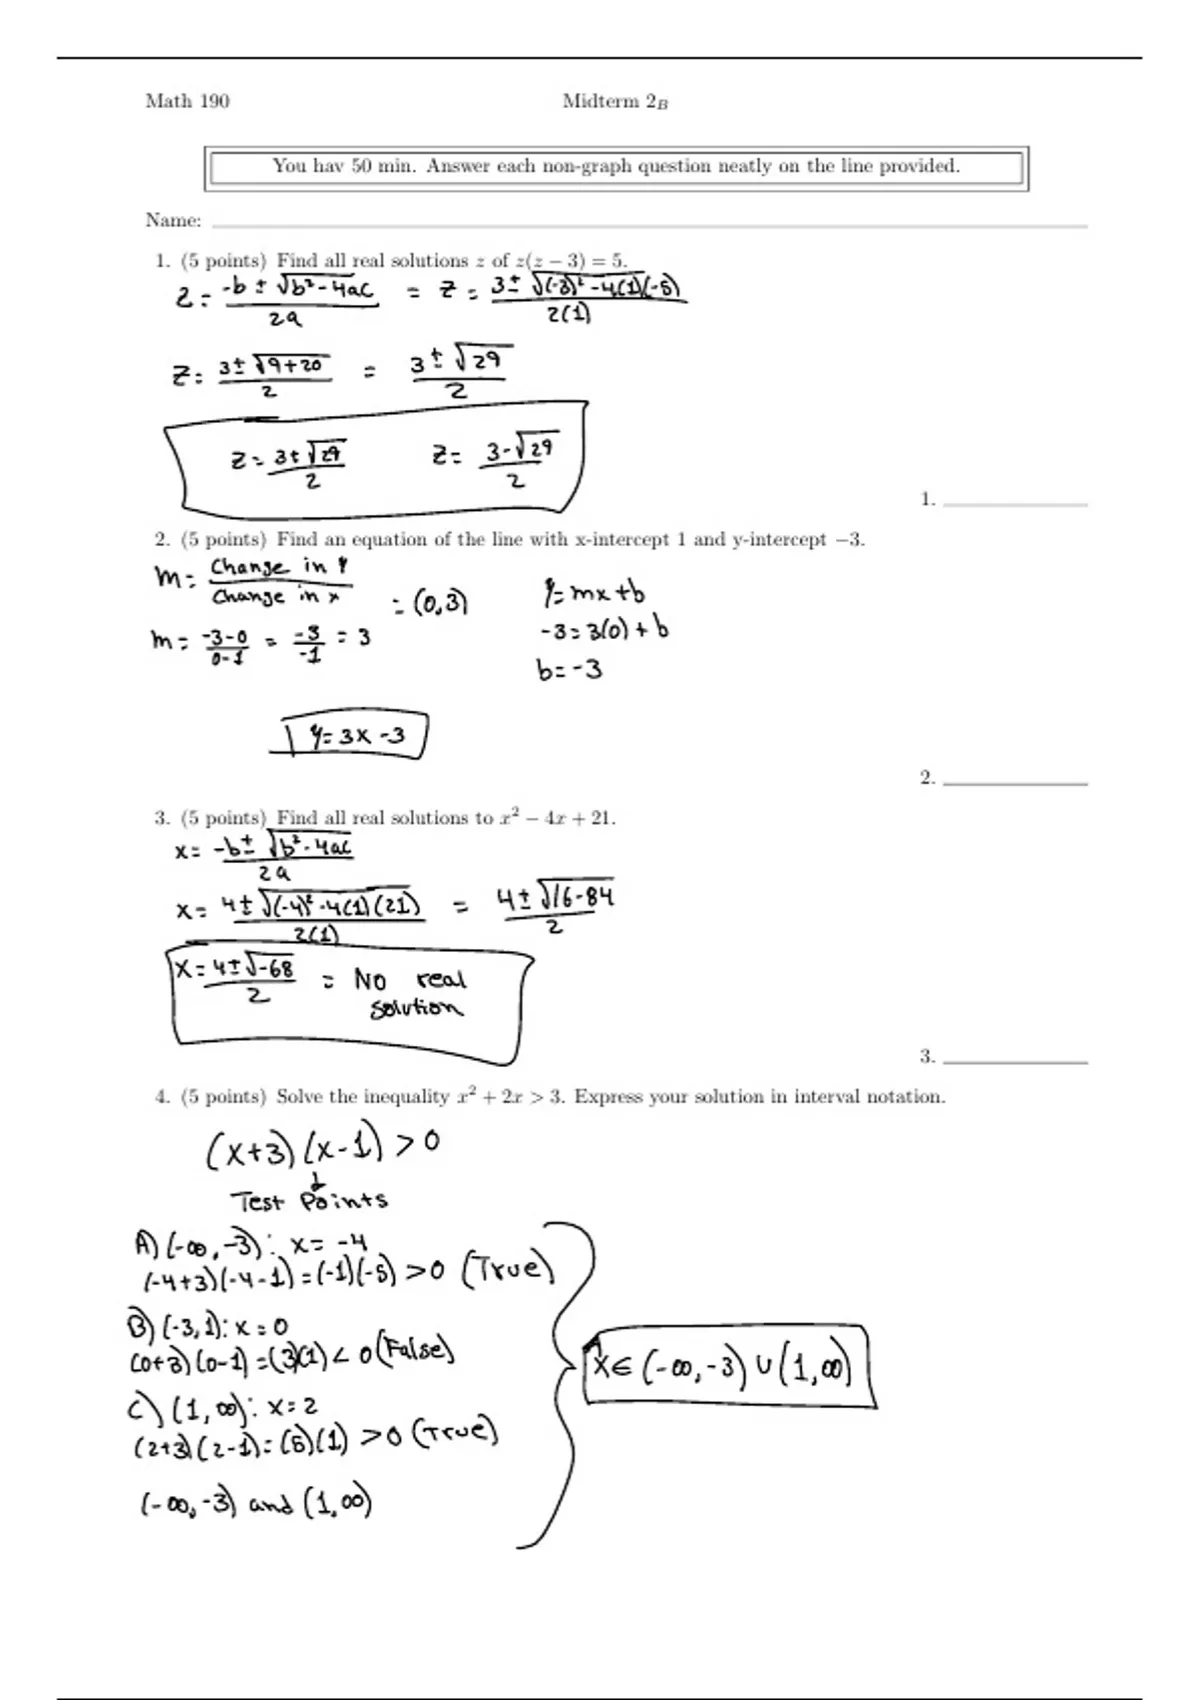 Math 190 Midterm 2B
You hav 50 min. Answer each non-graph question neatly on the line provided.
Name:
1. (5 points) Find all real solutions z of z(z − 3) = 5.
z = (-b ± √(b² - 4ac)) / 2a = z = (3 ± √((-3)² - 4(1)(-5))) / 2(1)
z = (3 ± √(9+20)) / 2 = (3 ± √29) / 2
z = (3 + √29) / 2 z = (3 - √29) / 2
1.
2. (5 points) Find an equation of the line with x-intercept 1 and y-intercept −3.
m = Change in y / Change in x = (0,3) y = mx + b
m = (-3-0)/(0-1) = -3/-1 = 3 -3 = 3(0) + b
b = -3
y = 3x - 3
2.
3. (5 points) Find all real solutions to x² − 4x + 21.
x = (-b ± √(b² - 4ac)) / 2a
x = (4 ± √((-4)² - 4(1)(21))) / 2(1) = (4 ± √(16-84)) / 2
x = (4 ± √-68) / 2 = No real
solution
3.
4. (5 points) Solve the inequality x² + 2x > 3. Express your solution in interval notation.
(x+3)(x-1) > 0
Test Points
A) (-∞, -3): x = -4
(-4+3)(-4-1) = (-1)(-5) > 0 (True)
B) (-3, 1): x = 0
(0+3)(0-1) = (3)(1) < 0 (False)
x ∈ (-∞, -3) ∪ (1, ∞)
C) (1, ∞): x = 2
(2+3)(2-1) = (5)(1) > 0 (True)
(-∞, -3) and (1, ∞)